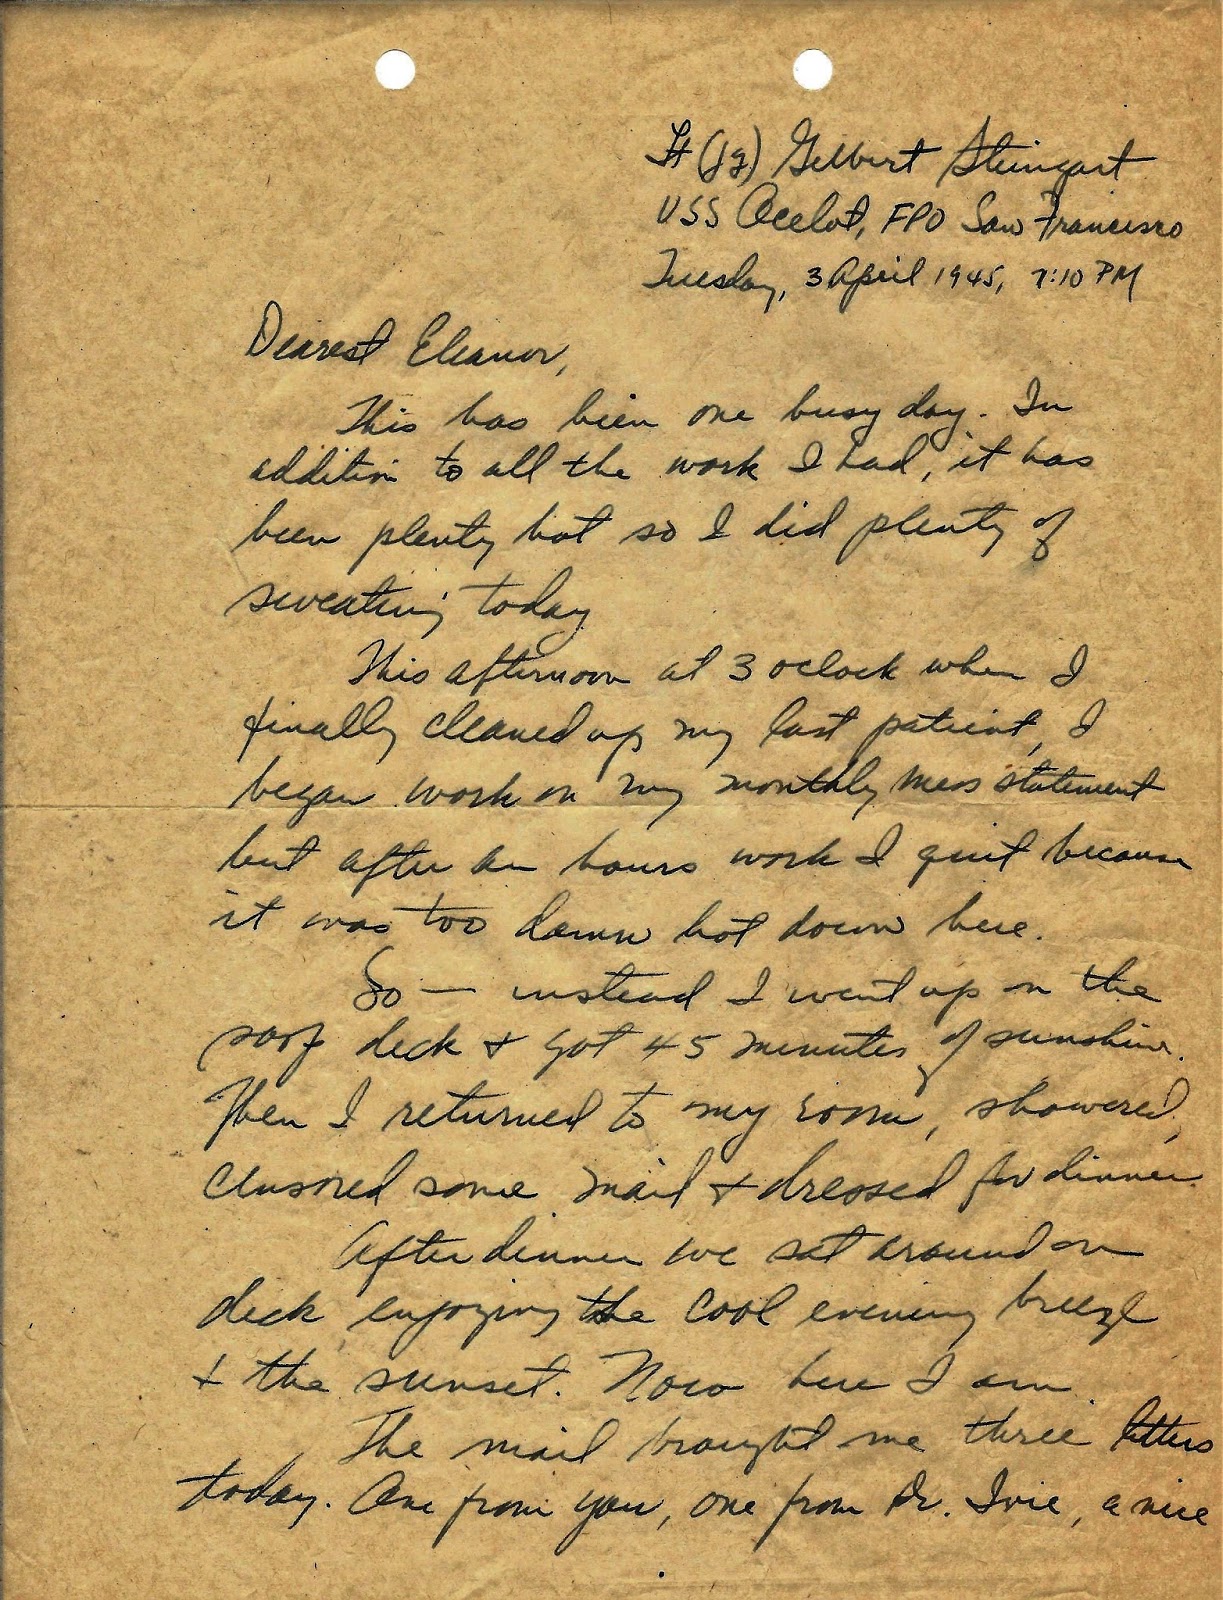 Lt (jg) Gilbert Steingart
USS Ocelot, FPO San Francisco
Tuesday, 3 April 1945, 7:10 PM
Dearest Eleanor,
This has been one busy day. In
addition to all the work I had, it has
been plenty hot so I did plenty of
sweating today
This afternoon at 3 oclock when I
finally cleaned up my last patient, I
began work on my monthly mess statement
but after an hours work I quit because
it was too damn hot down here.
So — instead I went up on the
roof deck & got 45 minutes of sunshine.
Then I returned to my room, showered,
censored some mail & dressed for dinner.
After dinner we sat around on
deck enjoying the cool evening breeze
& the sunset. Now here I am.
The mail brought me three letters
today. One from you, one from Dr. Ivie, a nice